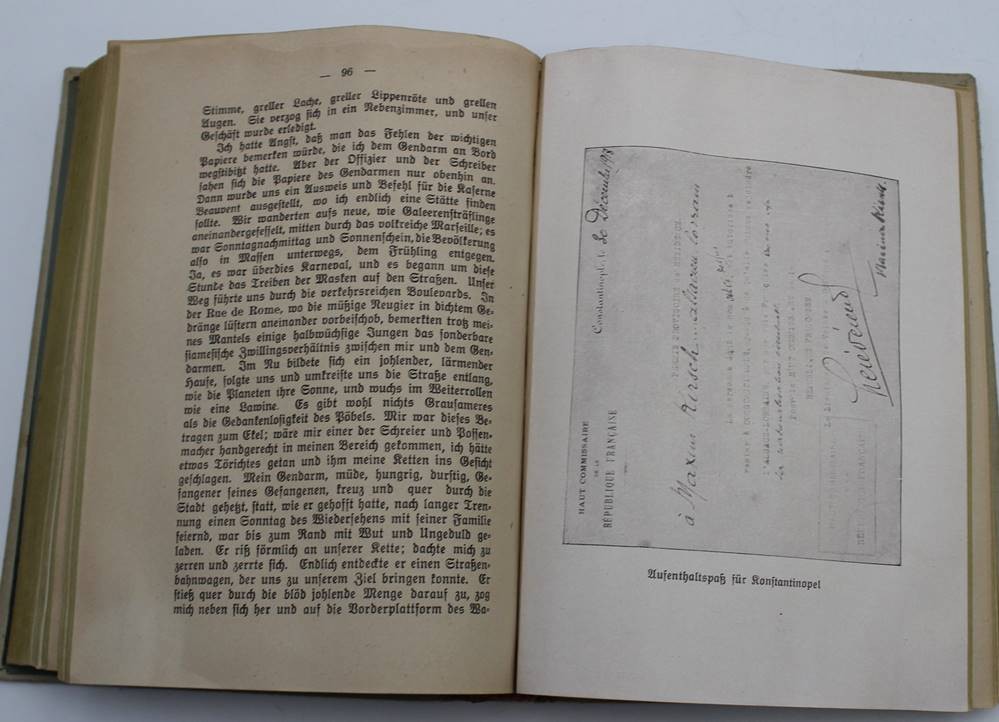 — 96 —
Stimme, greller Lache, greller Lippenröte und grellen
Augen. Sie verzog sich in ein Nebenzimmer, und unser
Geschäft wurde erledigt.
Ich hatte Angst, daß man das Fehlen der wichtigen
Papiere bemerken würde, die ich dem Gendarm an Bord
wegstibitzt hatte. Aber der Offizier und der Schreiber
sahen sich die Papiere des Gendarmen nur obenhin an.
Dann wurde uns ein Ausweis und Befehl für die Kaserne
Beauvent ausgestellt, wo ich endlich eine Stätte finden
sollte. Wir wanderten aufs neue, wie Galeerensträflinge
aneinandergefesselt, mitten durch das volkreiche Marseille; es
war Sonntagnachmittag und Sonnenschein, die Bevölkerung
also in Massen unterwegs, dem Frühling entgegen.
Ja, es war überdies Karneval, und es begann um diese
Stunde das Treiben der Masken auf den Straßen. Unser
Weg führte uns durch die verkehrsreichen Boulevards. In
der Rue de Rome, wo die müßige Neugier in dichtem Ge-
dränge lüstern aneinander vorbeischob, bemerkten trotz mei-
nes Mantels einige halbwüchsige Jungen das sonderbare
siamesische Zwillingsverhältnis zwischen mir und dem Gen-
darmen. Im Nu bildete sich ein johlender, lärmender
Haufe, folgte uns und umkreiste uns die Straße entlang,
wie die Planeten ihre Sonne, und wuchs im Weiterrollen
wie eine Lawine. Es gibt wohl nichts Grausameres
als die Gedankenlosigkeit des Pöbels. Mir war dieses Be-
tragen zum Ekel; wäre mir einer der Schreier und Possen-
macher handgerecht in meinen Bereich gekommen, ich hätte
etwas Törichtes getan und ihm meine Ketten ins Gesicht
geschlagen. Mein Gendarm, müde, hungrig, durstig, Ge-
fangener seines Gefangenen, kreuz und quer durch die
Stadt gehetzt, statt, wie er gehofft hatte, nach langer Tren-
nung einen Sonntag des Wiedersehens mit seiner Familie
feiernd, war bis zum Rand mit Wut und Ungeduld ge-
laden. Er riß förmlich an unserer Kette; dachte mich zu
zerren und zerrte sich. Endlich entdeckte er einen Straßen-
bahnwagen, der uns zu unserem Ziel bringen konnte. Er
stieß quer durch die blöd johlende Menge darauf zu, zog
mich neben sich her und auf die Vorderplattform des Wa-
HAUT COMMISSAIRE
DE LA
RÉPUBLIQUE FRANÇAISE
Constantinople, le
à
Aufenthaltspaß für Konstantinopel